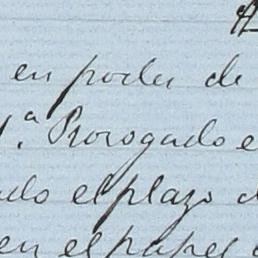 en poder de
1.ª Prorogado e
ado el plazo d
en el papel